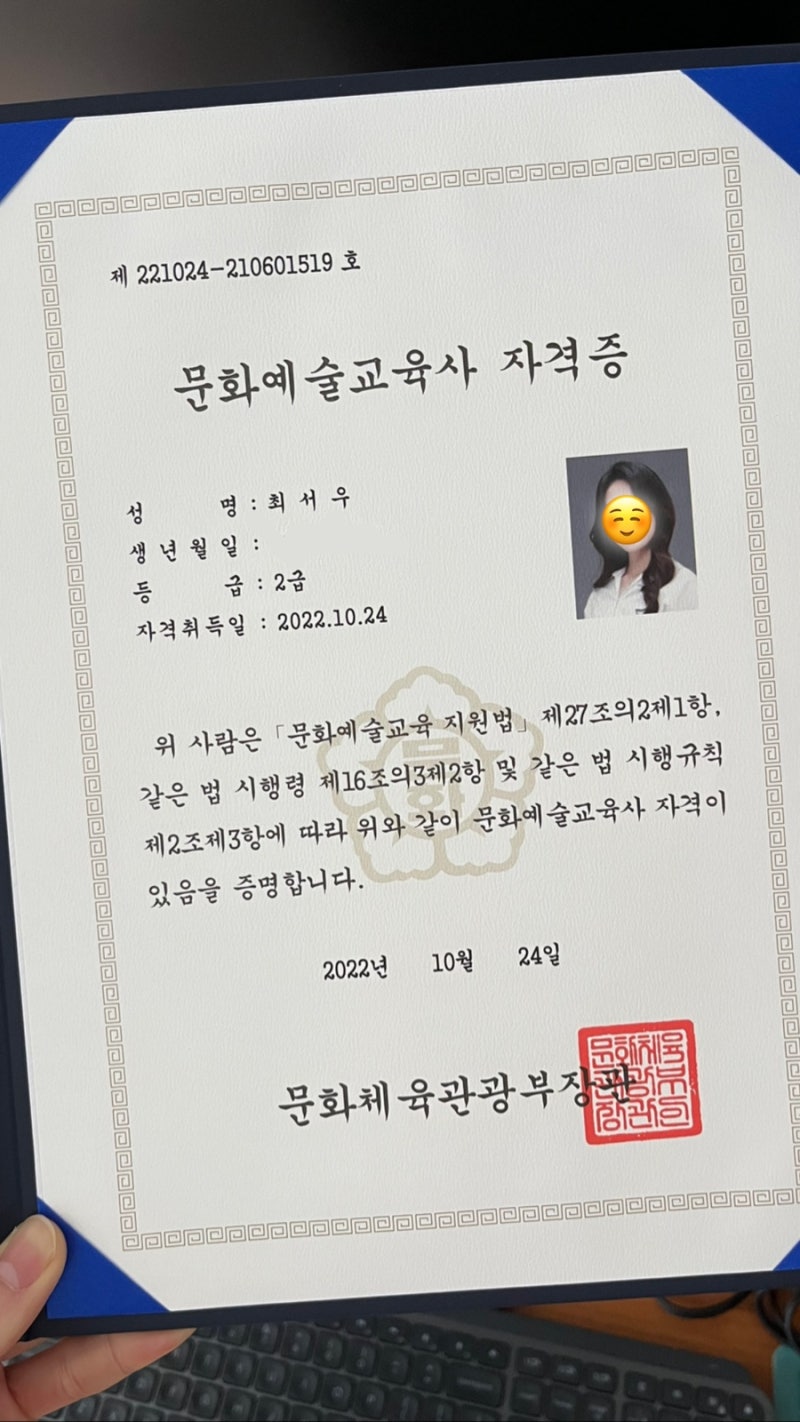 제 221024-210601519 호
문화예술교육사 자격증
성 명 : 최 서 우
생 년 월 일 :
등 급 : 2급
자격취득일 : 2022.10.24
위 사람은 「문화예술교육 지원법」 제27조의2제1항,
같은 법 시행령 제16조의3제2항 및 같은 법 시행규칙
제2조제3항에 따라 위와 같이 문화예술교육사 자격이
있음을 증명합니다.
2022년 10월 24일
문화체육관광부장관
문화체육
관광부
장관의